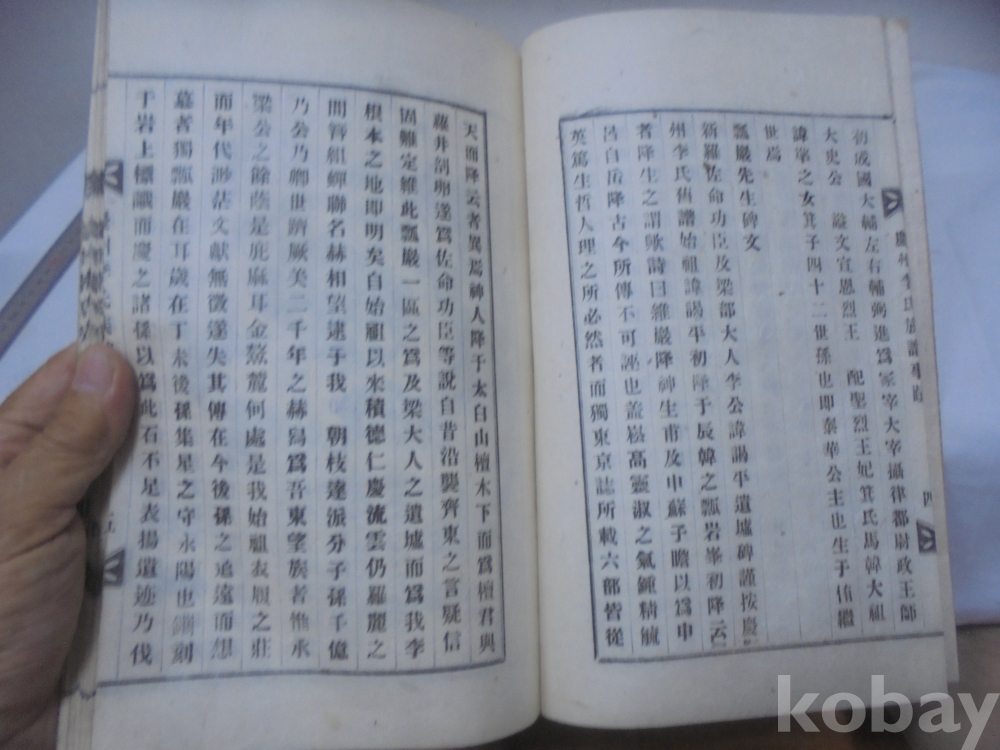 初成國大輔左右輔弼進爲冢宰大宰攝律都尉政王師
大史公 諡文宣恩烈王 配聖烈王妃箕氏馬韓大祖
諱宰之女箕子四十二世孫也即泰華公主也生子侑繼
世焉
瓢巖先生碑文
新羅佐命功臣及梁部大人李公諱謁平遺墟碑謹按慶
州李氏舊譜始祖諱謁平初降于辰韓之瓢岩峯初降云
者降生之謂歟詩曰維嶽降神生甫及申蘇子瞻以爲申
呂自岳降古今所傳不可誣也盖崧高靈淑之氣鍾精毓
英篤生哲人理之所必然者而獨東京誌所載六部皆從
四
天而降云者異焉神人降于太白山檀木下而爲檀君與
蘿井剖卵遂爲佐命功臣等說自昔沿襲齊東之言疑信
固難定維此瓢巖一區之爲及梁大人之遺墟而爲我李
根本之地即明矣自始祖以來積德仁慶流雲仍羅麗之
間簪組蟬聯名赫相望逮于我 朝枝達派分子孫千億
乃公乃卿世濟厥美二千年之赫舄爲吾東望族者惟永
梁公之餘蔭是庇麻耳金鰲麓何處是我始祖衣履之莊
而年代渺茫文献無徵遂失其傳在今後孫之追遠而想
慕者獨瓢巖在耳歲在丁未後孫集星之守永陽也鐫刻
于岩上標識而慶之諸孫以爲此石不足表揚遺迹乃伐
五
kobay